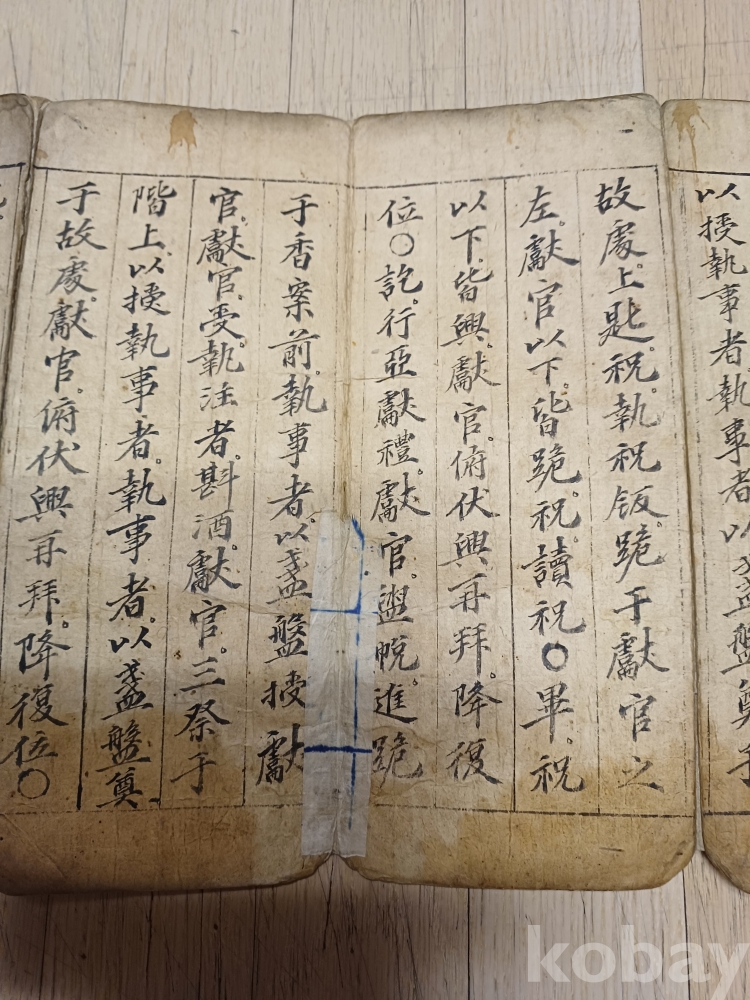 以授執事者執事者以盞盤奠于
故處上匙祝執祝板跪于獻官之
左獻官以下皆跪祝讀祝○畢祝
以下皆興獻官俯伏興再拜降復
位○訖行亞獻禮獻官盥帨進跪
于香案前執事者以盞盤授獻
官獻官受執注者斟酒獻官三祭于
階上以授執事者執事者以盞盤奠
于故處獻官俯伏興再拜降復位○
kobay